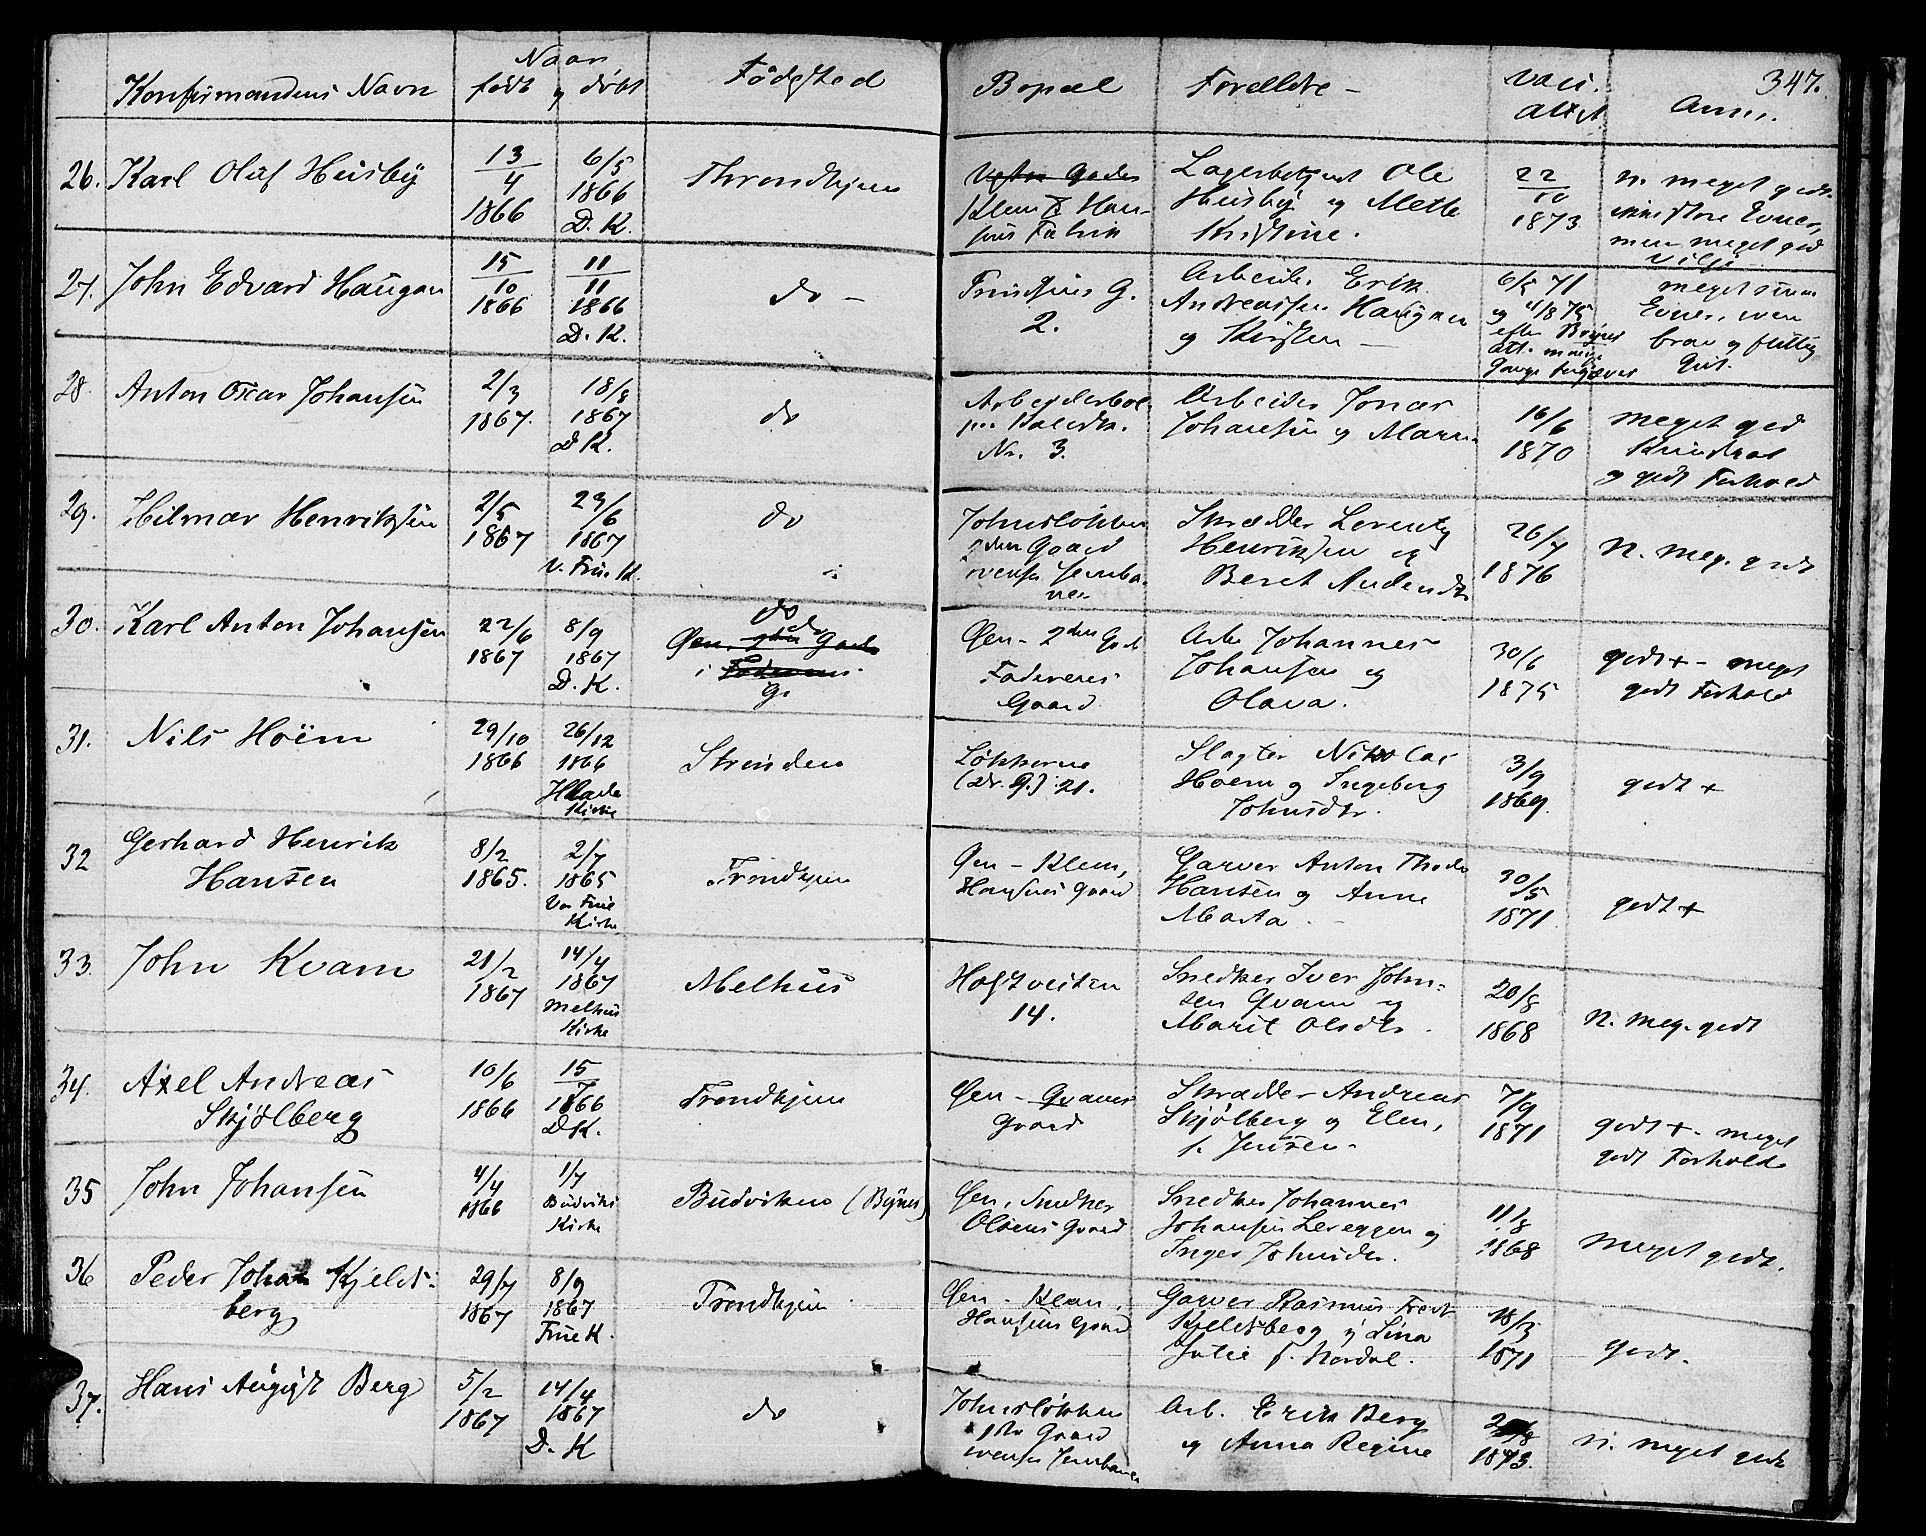 347.
Konfirmandens Navn
Naar
født og døbt
Fødested
Bopæl
Forældre -
Vacc.
Attest
Anm.
26. Karl Oluf Husby
13/4
1866
6/5
1866
D. K.
Throndhjem
Klem & Han-
sens Fabrik
Lagerbetjent Ole
Husby og Mette
Kristine.
22/10
1873
n. meget godt.
mindre Evner,
men meget god
Vilje
27. John Edvard Haugan
15/10
1866
11/11
1866
D. K.
do -
Trindsens G.
2.
Arbeider Erik
Andreassen Haugan
og Kirsten -
6/5 71
og 4/8 75
efter Bøgnes
att. mange
Gange forgjæves
meget smaa
Evner, men
brav og flittig
Gut.
28. Anton Oscar Johansen
2/3
1867.
18/8
1867
D K.
do
Arbejderbol.
Nr. 3.
Arbeider Jonas
Johansen og Maren
16/6
1870
meget god
Kundskab
og godt Forhold
29. Hilmar Henriksen
2/5
1867
23/6
1867
V. Frue K.
do
Johnsløkken
2den Gaard
ovenfor Jernba-
nen
Skrædder Lorents
Henriksen og
Beret Andersdtr
26/7
1876
n. meg. godt
30. Karl Anton Johansen
22/6
1867
8/9
1867
D. K.
do
Øen - 2den Gaard
i Foderens
G.
Øen - 2den Grd
Foderens
Gaard
Arb. Johannes
Johansen og
Olava.
30/6
1875
godt + - meget
godt Forhold
31. Nils Hoëm
29/10
1866
26/12
1866
Hlade
Kirke
Strinden
Løkkerne
(Dr. G.) 21.
Slagter Nikolai
Hoem og Ingeborg
Johnsdtr.
3/9
1869.
godt +
32 Gerhard Henrik
Hansen
8/2
1865.
2/7
1865
Vor Frue
Kirke
Trondhjem
Øen - Klem,
Hansens Gaard
Garver Anton Theodor
Hansen og Anne
Marta -
30/5
1871.
godt +
33. John Kvam
21/2
1867
14/4
1867
Melhus
Kirke
Melhus
Hospitalsveiten
14.
Snedker Iver John-
sen Qvam og
Marit Olsdtr.
20/8
1868
n. meg. godt
34. Axel Andreas
Skjølberg
10/6
1866
15/7
1866
D K.
Trondhjem
Øen - Qvams
Gaard
Skrædder Andreas
Skjølberg og Elen,
f. Jensen -
7/9
1871
godt +. meget
godt Forhold
35 John Johansen
4/4
1866
1/7
Budviks
Kirke
Budviken (Bynes)
Øen, Snedker
Olsens Gaard
Snedker Johannes
Johansen Lereggen og
Inger Johnsdtr.
11/8
1868
meget godt.
36 Peder Johan Kjelds-
berg
29/7
1867
8/9
1867
Frue K.
Trondhjem.
Øen - Klem,
Hansens Gaard
Garver Rasmus Fredr.
Kjeldsberg og Lina
Julie f. Nordal.
18/5
1871
godt.
37. Hans August Berg
5/2
1867
14/4
1867
D. K
do
Johnsløkken
1ste Gaard
ovenfor Jernbanen
Arb. Erik Berg
og Anna Regine
1873.
n. meget godt